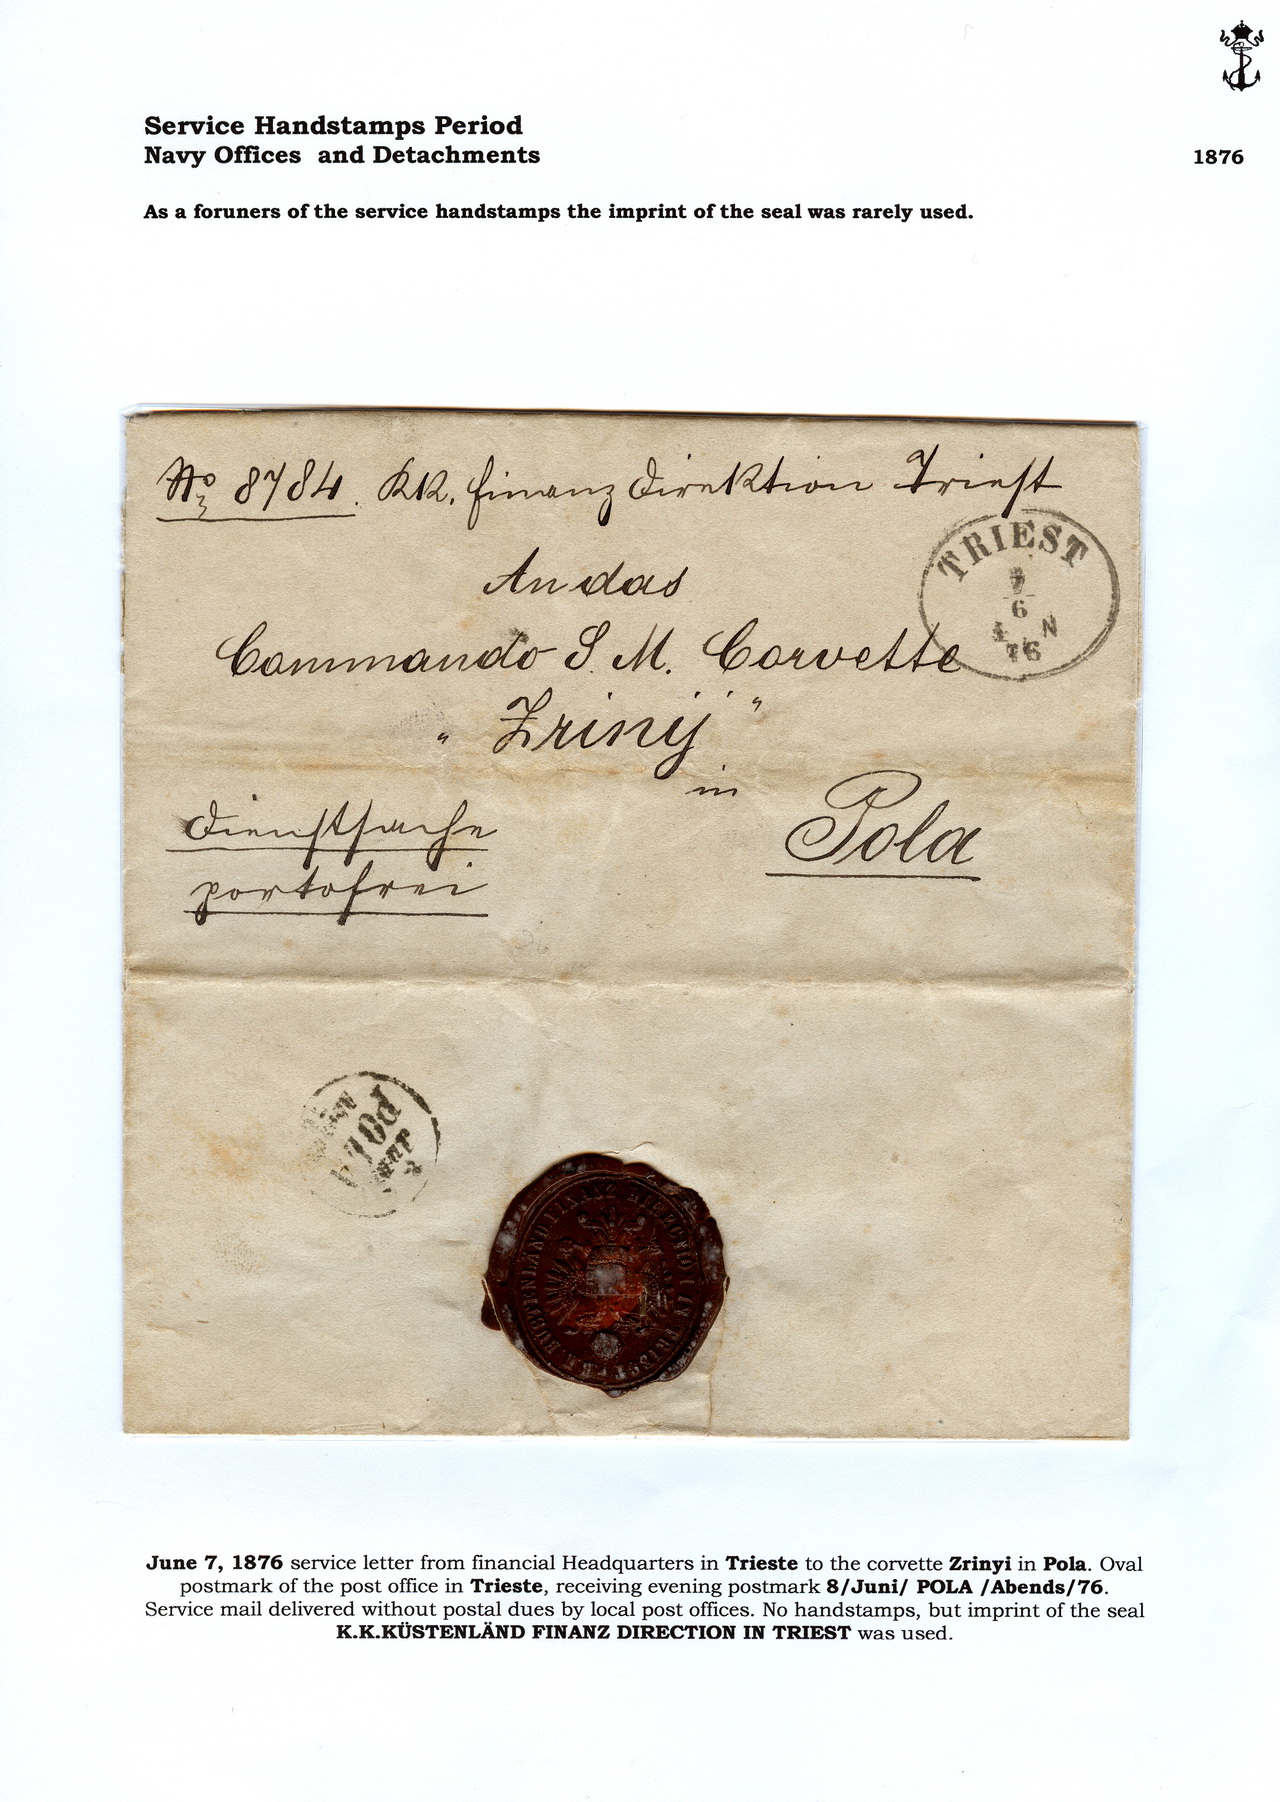 Service Handstamps Period
Navy Offices and Detachments
1876
As a foruners of the service handstamps the imprint of the seal was rarely used.
No 8784. KK. Finanz Direktion Triest
TRIEST
7
6
N
76
An das
Commando S. M. Corvette
„ Zrinij "
in
Pola
Dienstsache
portofrei
8
Juni
POLA
June 7, 1876 service letter from financial Headquarters in Trieste to the corvette Zrinyi in Pola. Oval
postmark of the post office in Trieste, receiving evening postmark 8/Juni/ POLA /Abends/76.
Service mail delivered without postal dues by local post offices. No handstamps, but imprint of the seal
K.K.KÜSTENLÄND FINANZ DIRECTION IN TRIEST was used.